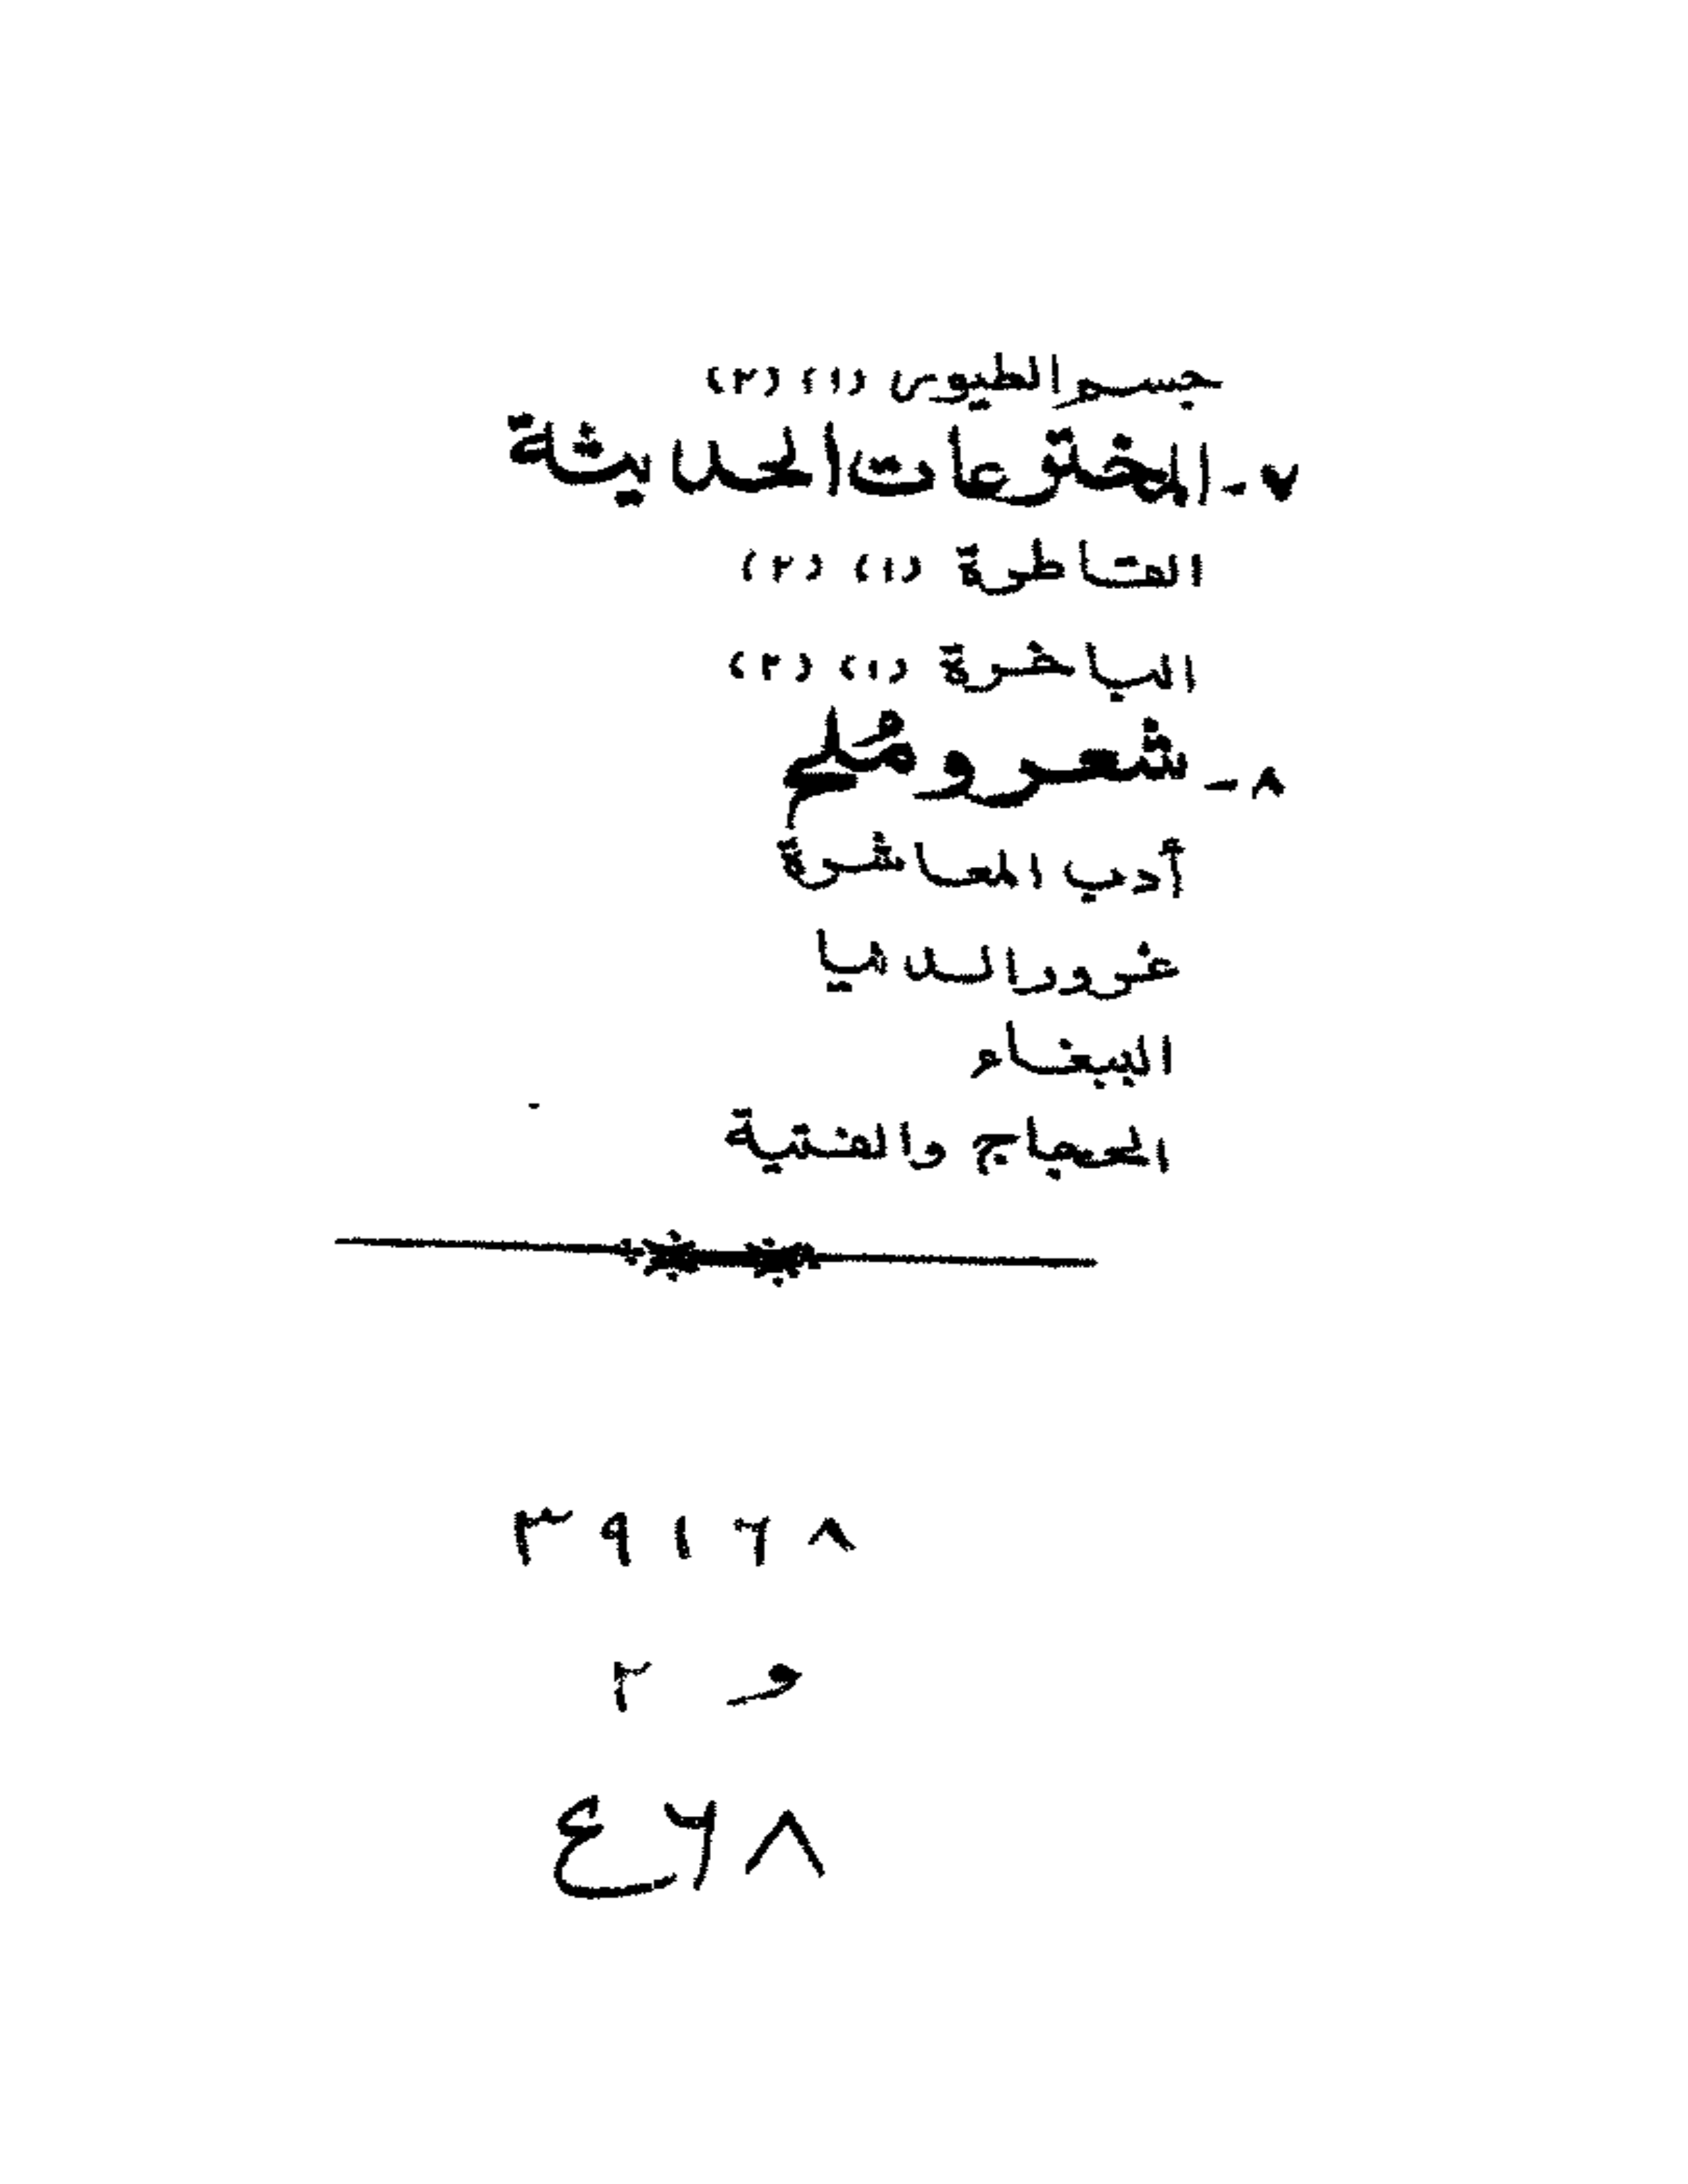 جسم الطيور (١) (٢)
٧ - المخترعات الحديثة
القاطرة (١) (٢)
الباخرة (١) (٢)
٨ - شعر ومُلح
أدب المعاشرة
غرور الدنيا
الببغاء
الحجاج والفتية
٣٩١٦٨
و ٢
٤٦٨